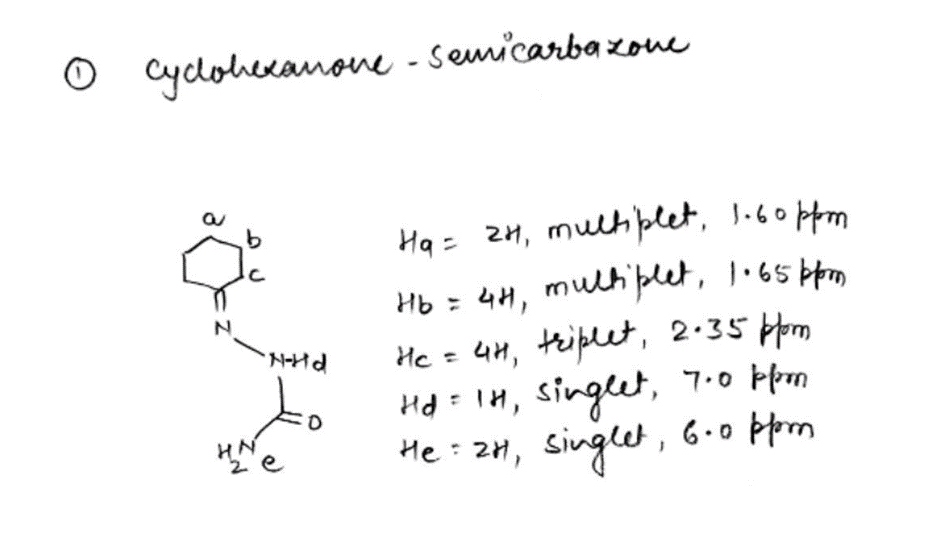 ① cyclohexanone - semicarbazone
a
b
c
N
N-Hd
O
H2N e
Ha = 2H, multiplet, 1.60 ppm
Hb = 4H, multiplet, 1.65 ppm
Hc = 4H, triplet, 2.35 ppm
Hd = 1H, singlet, 7.0 ppm
He = 2H, singlet, 6.0 ppm